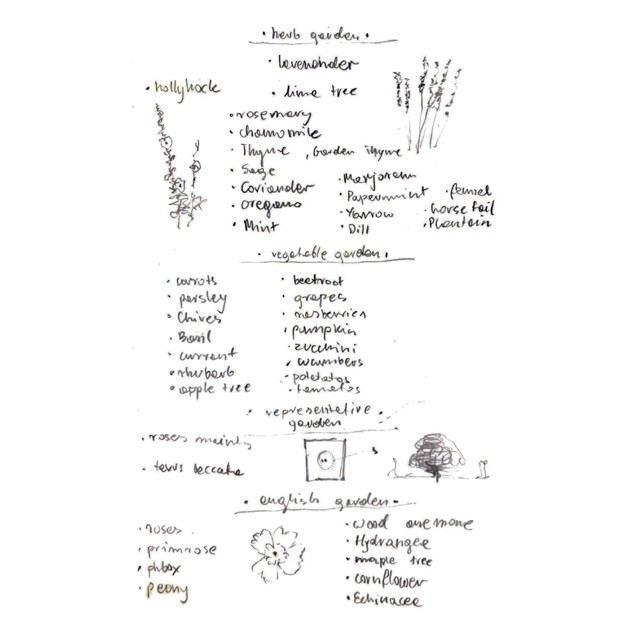 • herb garden •
• lavender
• hollyhock
• lime tree
• rosemary
• chamomile
• Thyme , Garden thyme
• Sage
• Coriander
• oregano
• Mint
• Marjoram
• Papermint
• Yarrow
• Dill
• fennel
• horse tail
• Plantain
• vegetable garden •
• carrots
• parsley
• Chives
• Basil
• current
• rhubarb
• apple tree
• beetroot
• grapes
• pumpkin
• zucchini
• cucumbers
• potatoes
• tomatos
• representative
garden
• roses mainly
• taxus baccata
• english garden •
• roses
• primrose
• phlox
• peony
• wood anemone
• Hydrangea
• maple tree
• cornflower
• Echinacea